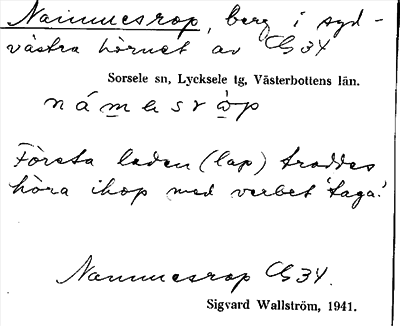 Nammesrop, berg i syd-
västra hörnet av G34
Sorsele sn, Lycksele tg, Västerbottens län.
námesròp
Första leden (lap) troddes
höra ihop med verbet 'taga'.
Nammesrop G34.
Sigvard Wallström, 1941.